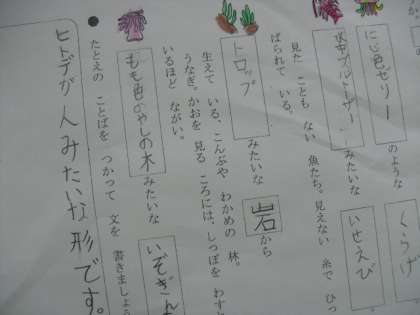 にじ色ゼリー のような くらげ
水中ブルドーザー みたいな いせえび
見た こと も ない 魚たち。見えない 糸で ひっ
ぱられて いる。
ドロップ みたいな 岩 から
生えて いる、こんぶや わかめの 林。
うなぎ。かおを 見る ころには、しっぽを わすれ
いるほど ながい。
もも色のやしの木 みたいな いそぎん
● たとえの ことばを つかって 文を 書きましょう
ヒトデが人みたいな形です。